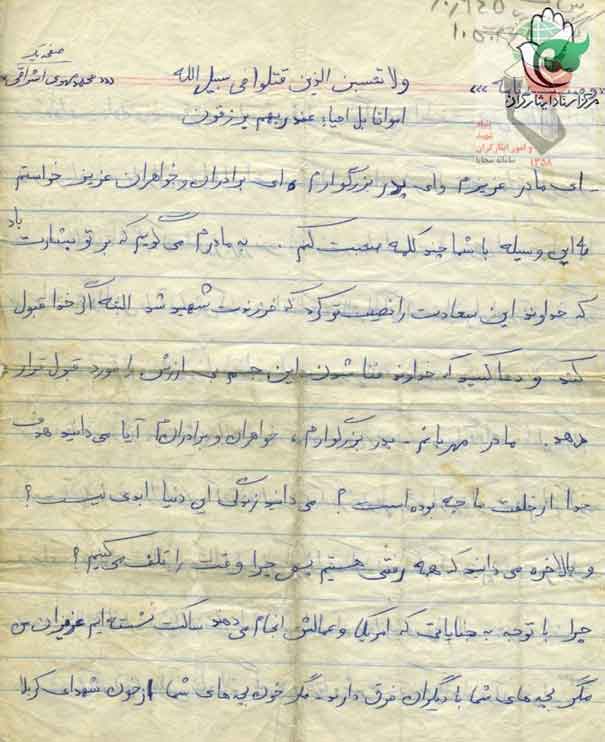 صفحه یک
ولا تحسبن الذین قتلوا فی سبیل الله
«محمد مهدی اشراقی»
امواتا بل احیاء عندربهم یرزقون
مرکز اسناد ایثارگران
بنیاد
شهید
و امور ایثارگران
سامانه سجایا
۱۳۵۸
ـ ای مادر عزیزم وای پدر بزرگوارم و ای برادران و خواهران عزیز خواستم
به این وسیله با شما چند کلمه صحبت کنم . به مادرم می گویم که بر تو بشارت باد
که خداوند این سعادت را نصیب تو کرد که فرزندت شهید شد البته اگر خدا قبول
کند و دعا کنید که خداوند منان این جسم بی ارزش را مورد قبول قرار
دهد . مادر مهربانم ـ پدر بزرگوارم ، خواهران و برادران آیا می دانید هدف
خدا از خلقت ما چه بوده است ؟ می دانید زندگی این دنیا ابدی نیست ؟
و بالاخره می دانید که همه رفتنی هستیم پس چرا وقت را تلف می کنیم ؟
چرا با توجه به جنایاتی که امریکا و عمالش انجام می دهند ساکت نشسته ایم عزیزان من
مگر بچه های شما با دیگران فرق دارند . مگر خون بچه های شما از خون شهدای کربلا